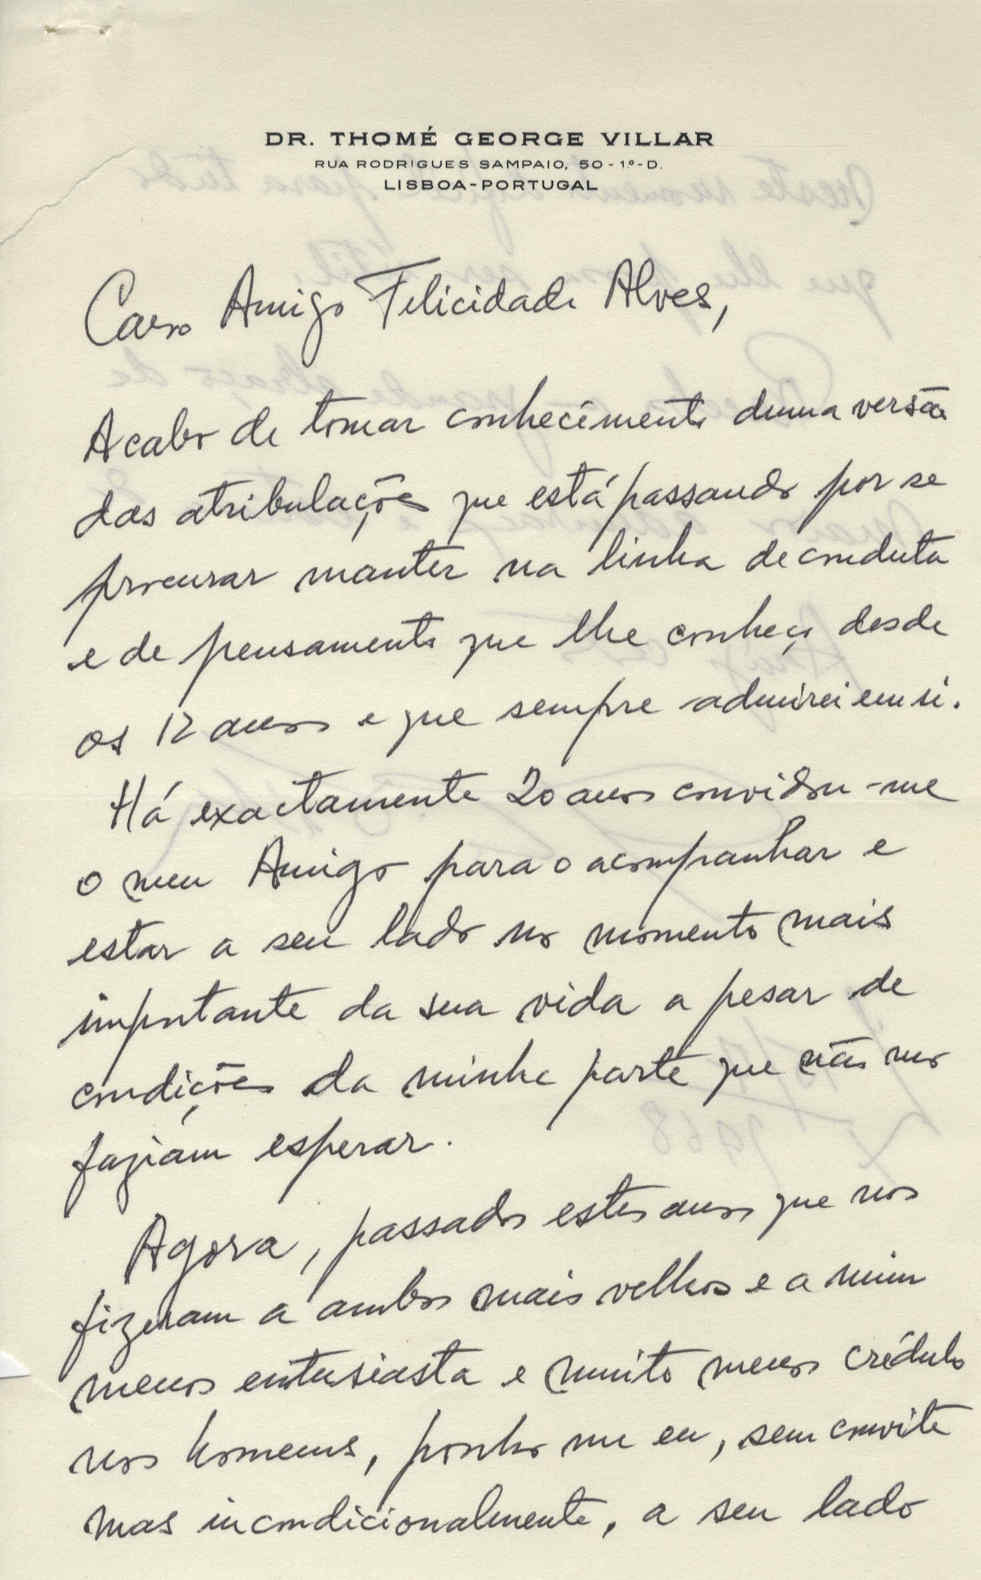 DR. THOMÉ GEORGE VILLAR
RUA RODRIGUES SAMPAIO, 50-1º-D.
LISBOA-PORTUGAL
Caro Amigo Felicidade Alves,
Acabo de tomar conhecimento duma versão
das atribulações que está passando por se
procurar manter na linha de conduta
e de pensamento que lhe conheço desde
os 12 anos e que sempre admirei em si.
Há exactamente 20 anos convidou-me
o meu Amigo para o acompanhar e
estar a seu lado no momento mais
importante da sua vida a pesar de
condições da minha parte que não no
faziam esperar.
Agora, passados estes anos que nos
fizeram a ambos mais velhos e a mim
menos entusiasta e muito menos crédulo
nos homens, ponho me eu, sem convite
mas incondicionalmente, a seu lado